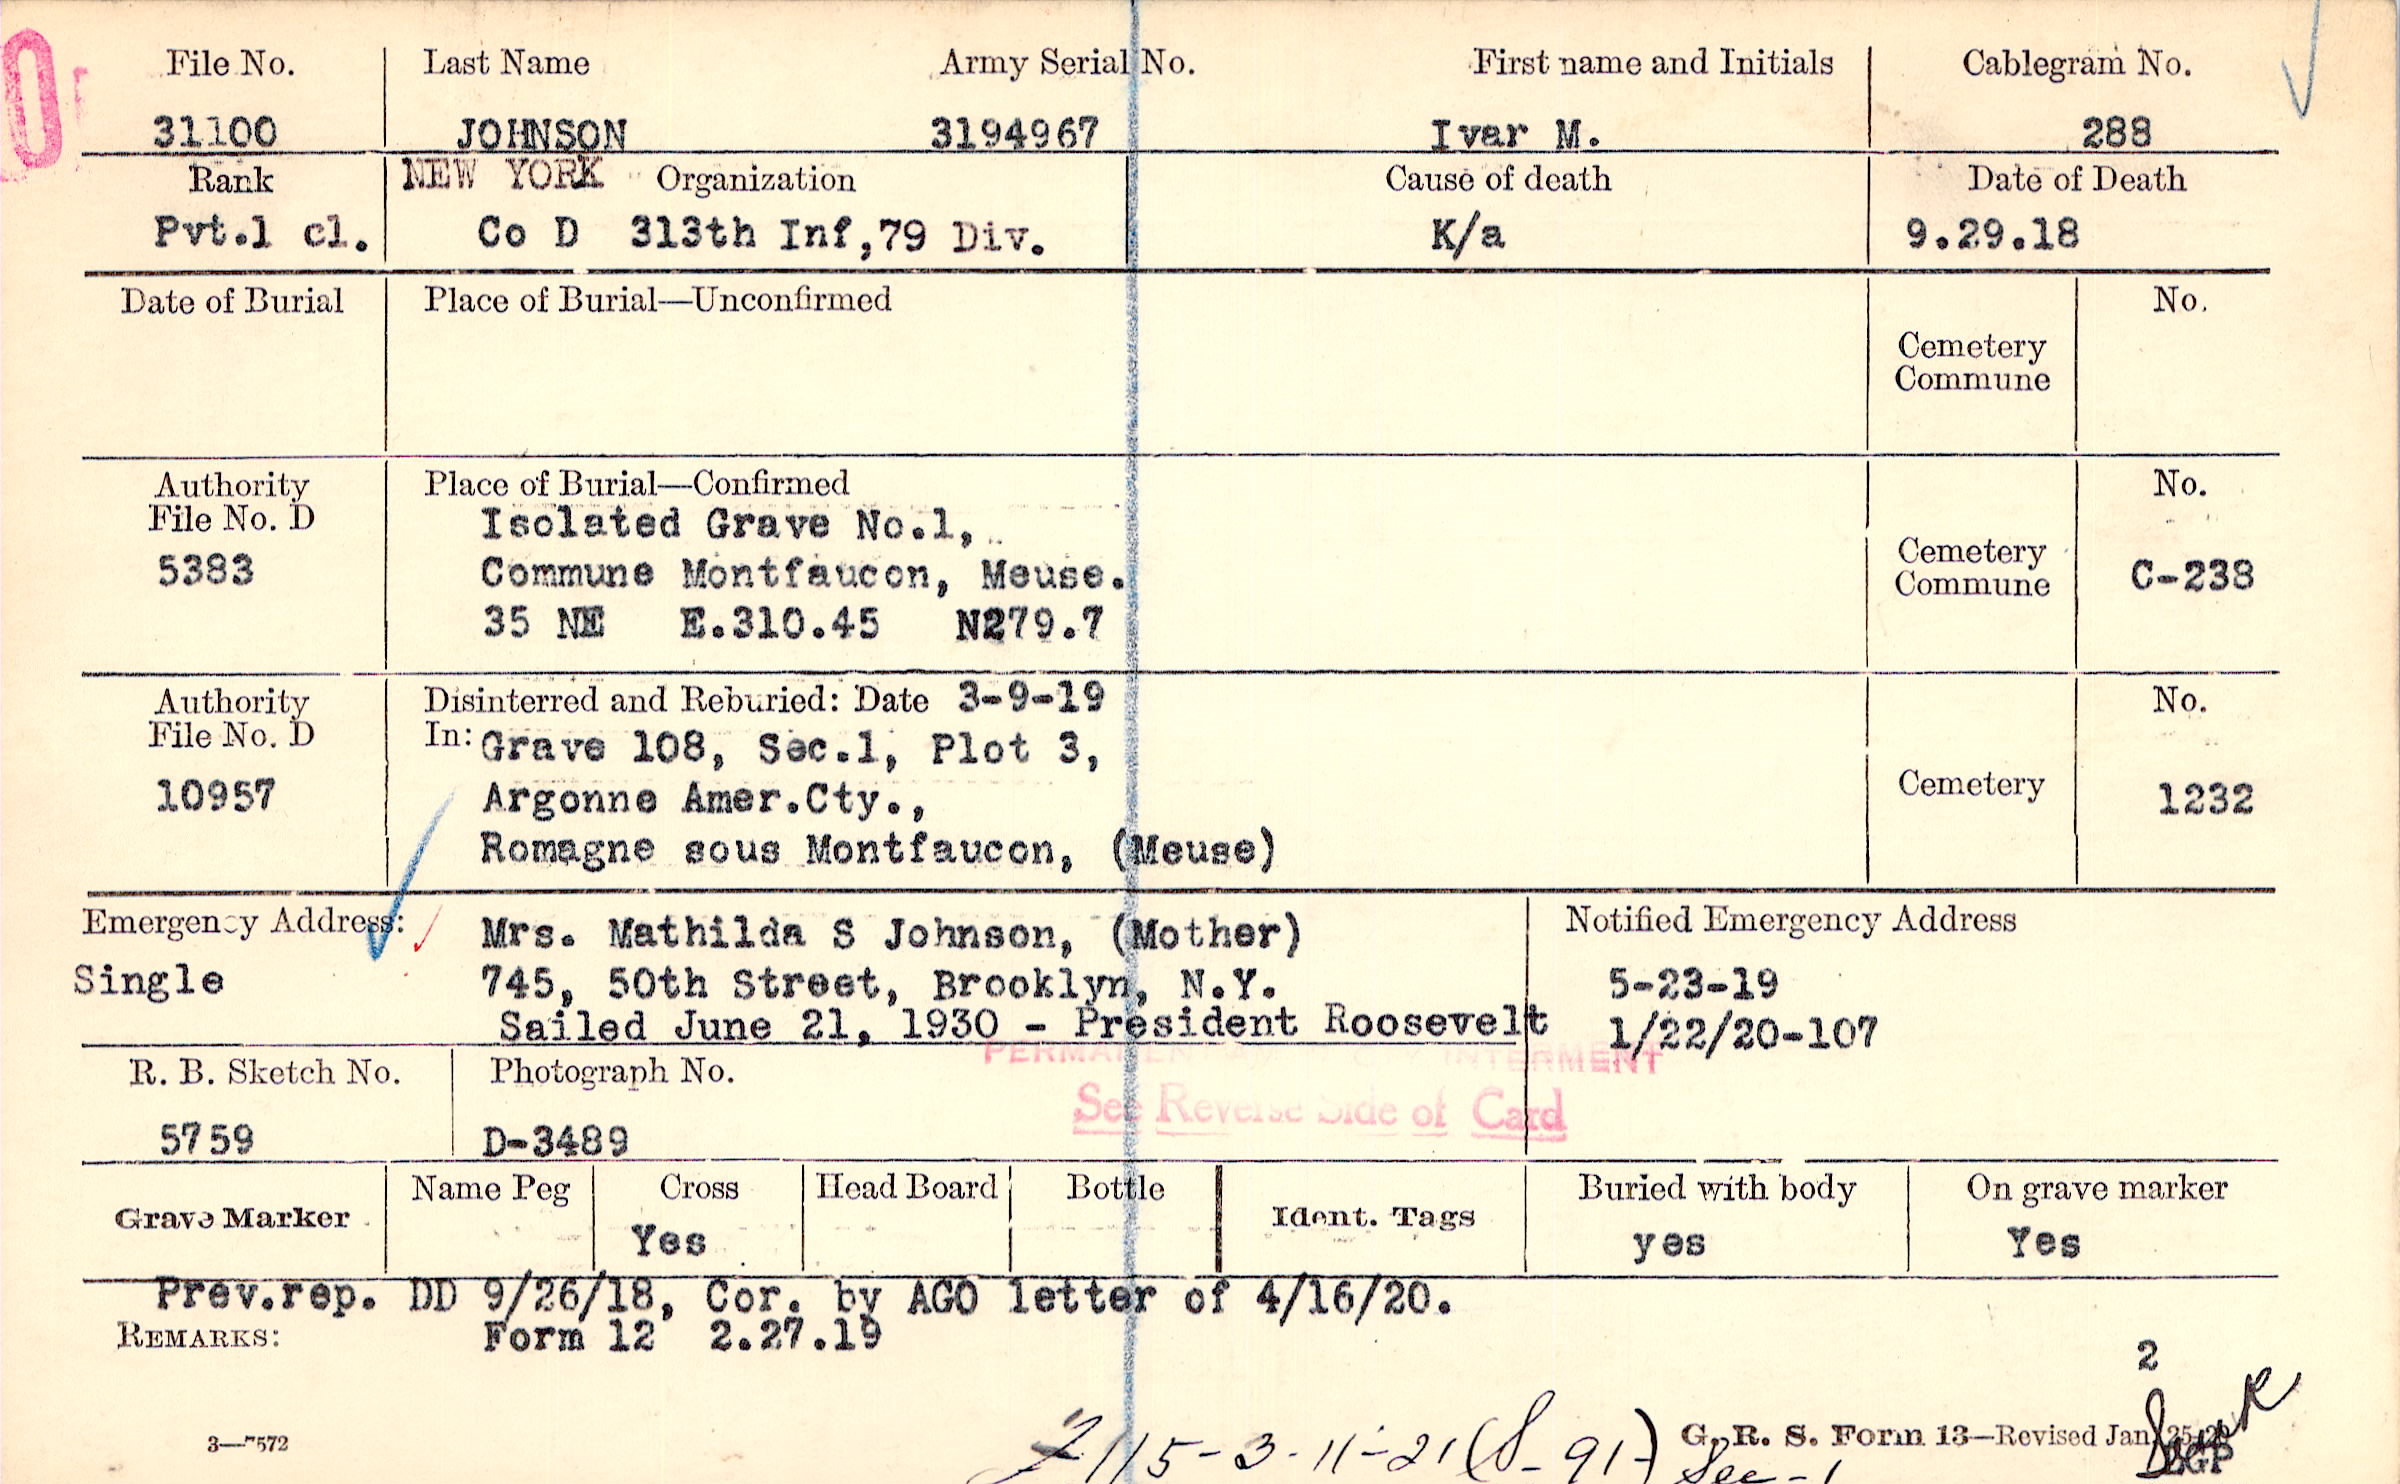 File No. Last Name Army Serial No. First name and Initials Cablegram No.
31100 JOHNSON 3194967 Ivar M. 288
Rank NEW YORK Organization Cause of death Date of Death
Pvt.1 cl. Co D 313th Inf,79 Div. K/a 9.29.18
Date of Burial Place of Burial—Unconfirmed No.
Cemetery
Commune
Authority Place of Burial—Confirmed No.
File No. D Isolated Grave No.1,
5383 Commune Montfaucon, Meuse. Cemetery Commune C-238
35 NE E.310.45 N279.7
Authority Disinterred and Reburied: Date 3-9-19 No.
File No. D In: Grave 108, Sec.1, Plot 3,
10957 Argonne Amer.Cty., Cemetery 1232
Romagne sous Montfaucon, (Meuse)
Emergency Address: Mrs. Mathilda S Johnson, (Mother) Notified Emergency Address
Single 745, 50th Street, Brooklyn, N.Y. 5-23-19
Sailed June 21, 1930 - President Roosevelt 1/22/20-107
PERMANENT INTERMENT
R. B. Sketch No. Photograph No.
See Reverse Side of Card
5759 D-3489
Grave Marker Name Peg Cross Head Board Bottle Ident. Tags Buried with body On grave marker
Yes yes Yes
Prev.rep. DD 9/26/18, Cor. by AGO letter of 4/16/20.
REMARKS: Form 12 2.27.19
2
3—7572 115-3-11-21 (S-91-) G. R. S. Form 13—Revised Jan
Sec-1